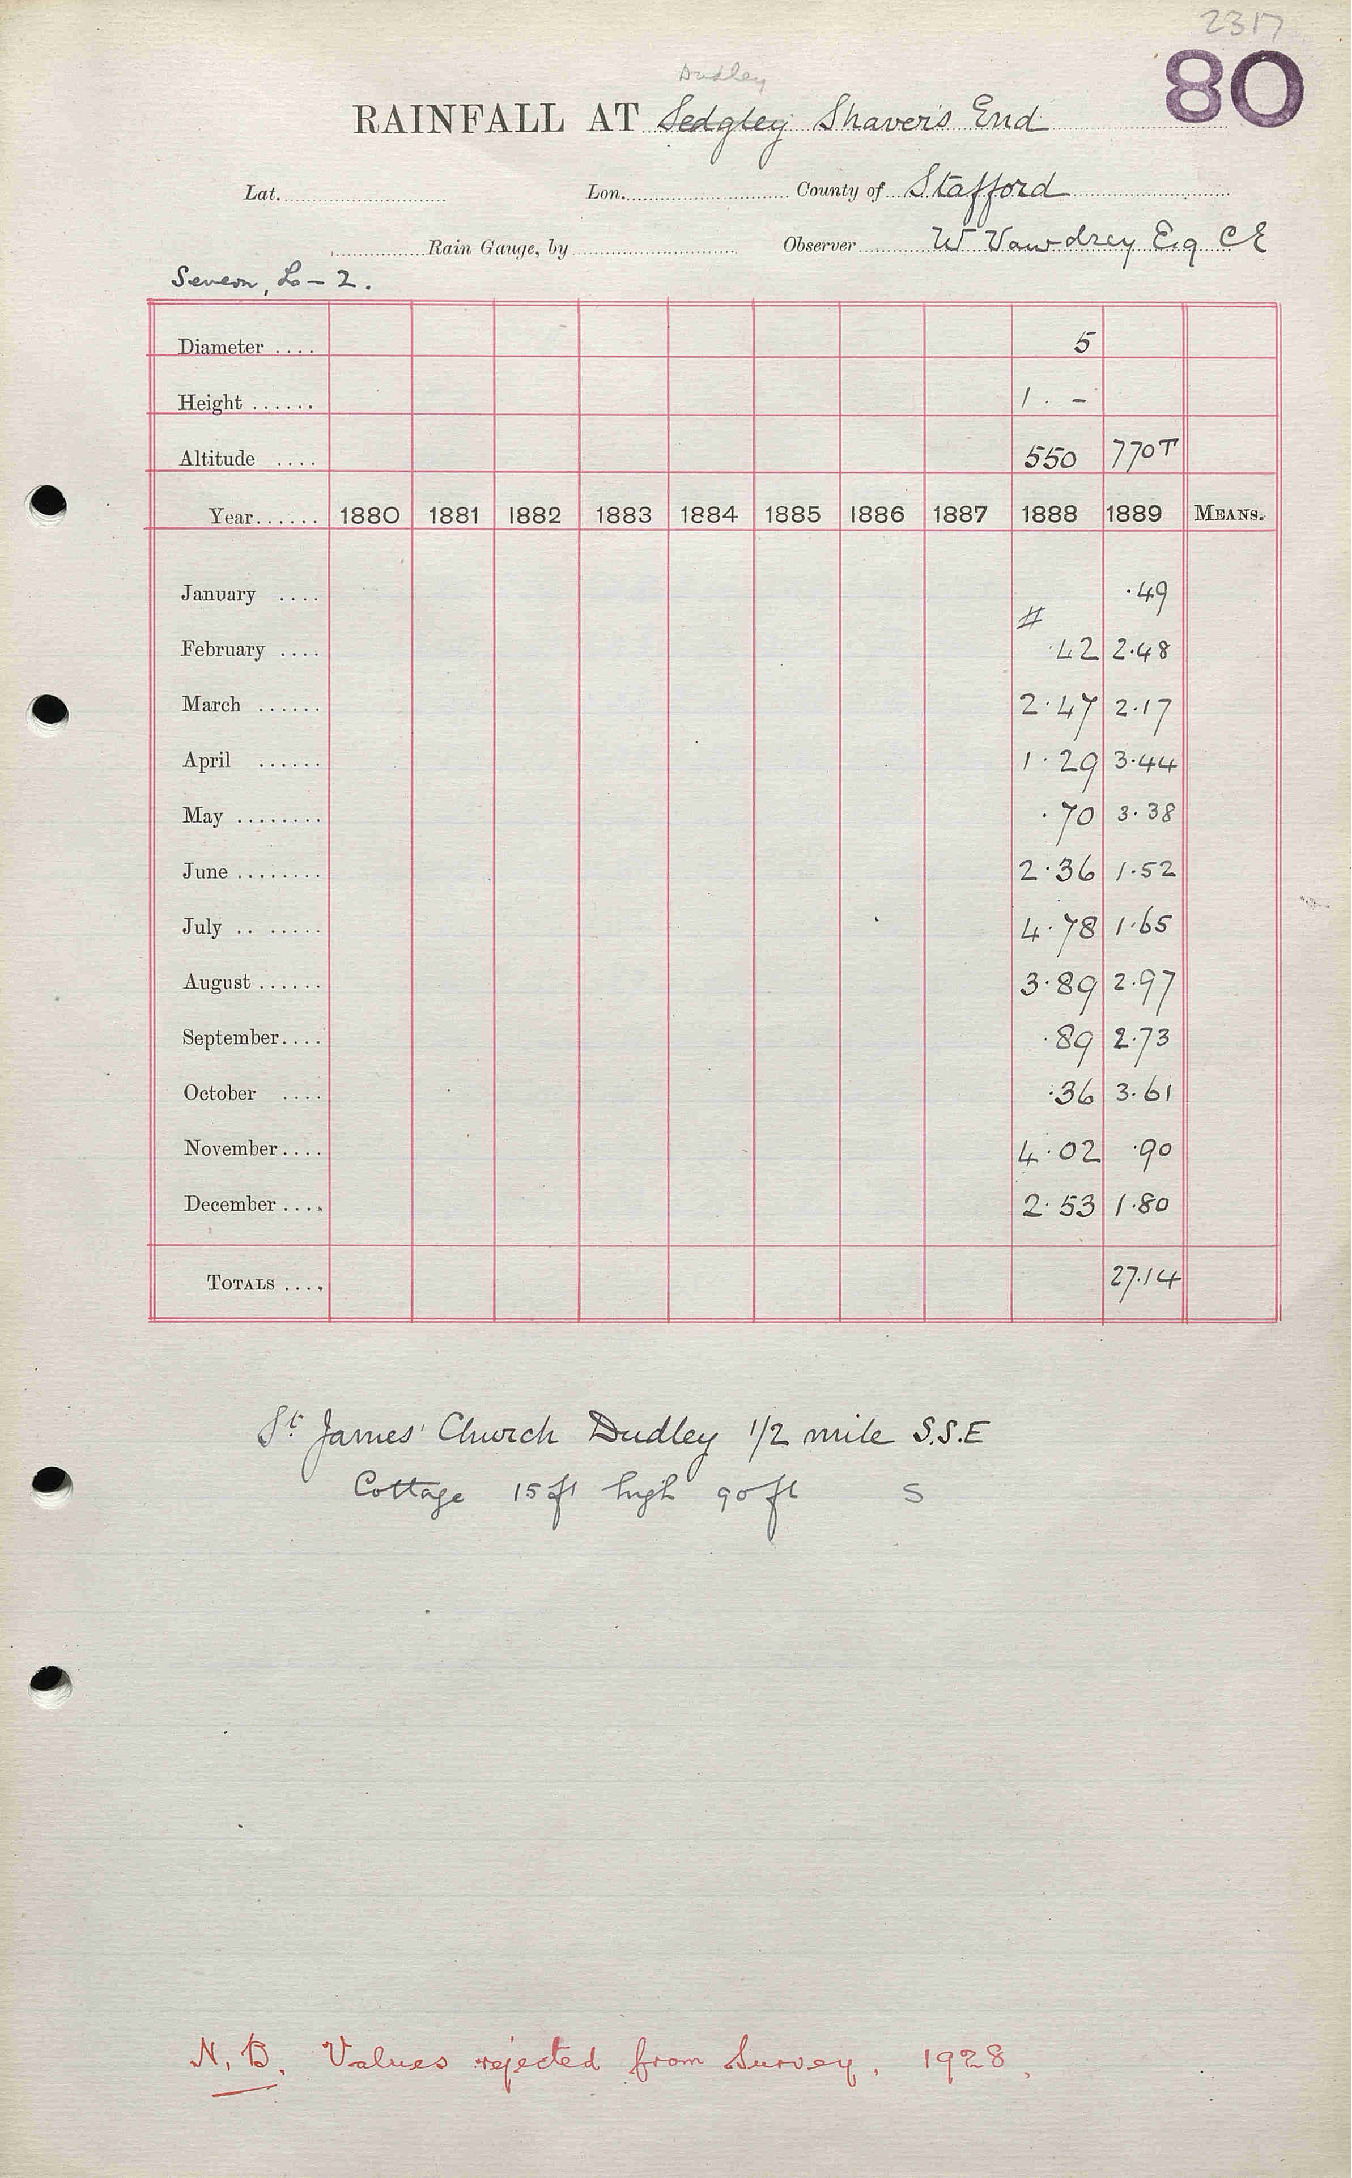 2317
80
Dudley
RAINFALL AT Sedgley Shaver's End
Lat. Lon. County of Stafford
Rain Gauge, by Observer W Vawdrey Esq CE
Severn, L - 2.
Diameter .... 5
Height ...... 1 . -
Altitude .... 550 770T
Year...... 1880 1881 1882 1883 1884 1885 1886 1887 1888 1889 MEANS.
January .... # .49
February .... .42 2.48
March ...... 2.47 2.17
April ...... 1.29 3.44
May ........ .70 3.38
June ........ 2.36 1.52
July .. ..... 4.78 1.65
August ...... 3.89 2.97
September.... .89 2.73
October .... .36 3.61
November.... 4.02 .90
December.... 2.53 1.80
TOTALS .... 27.14
St James' Church Dudley 1/2 mile S.S.E
Cottage 15ft high 90ft S
N.B. Values rejected from Survey. 1928.